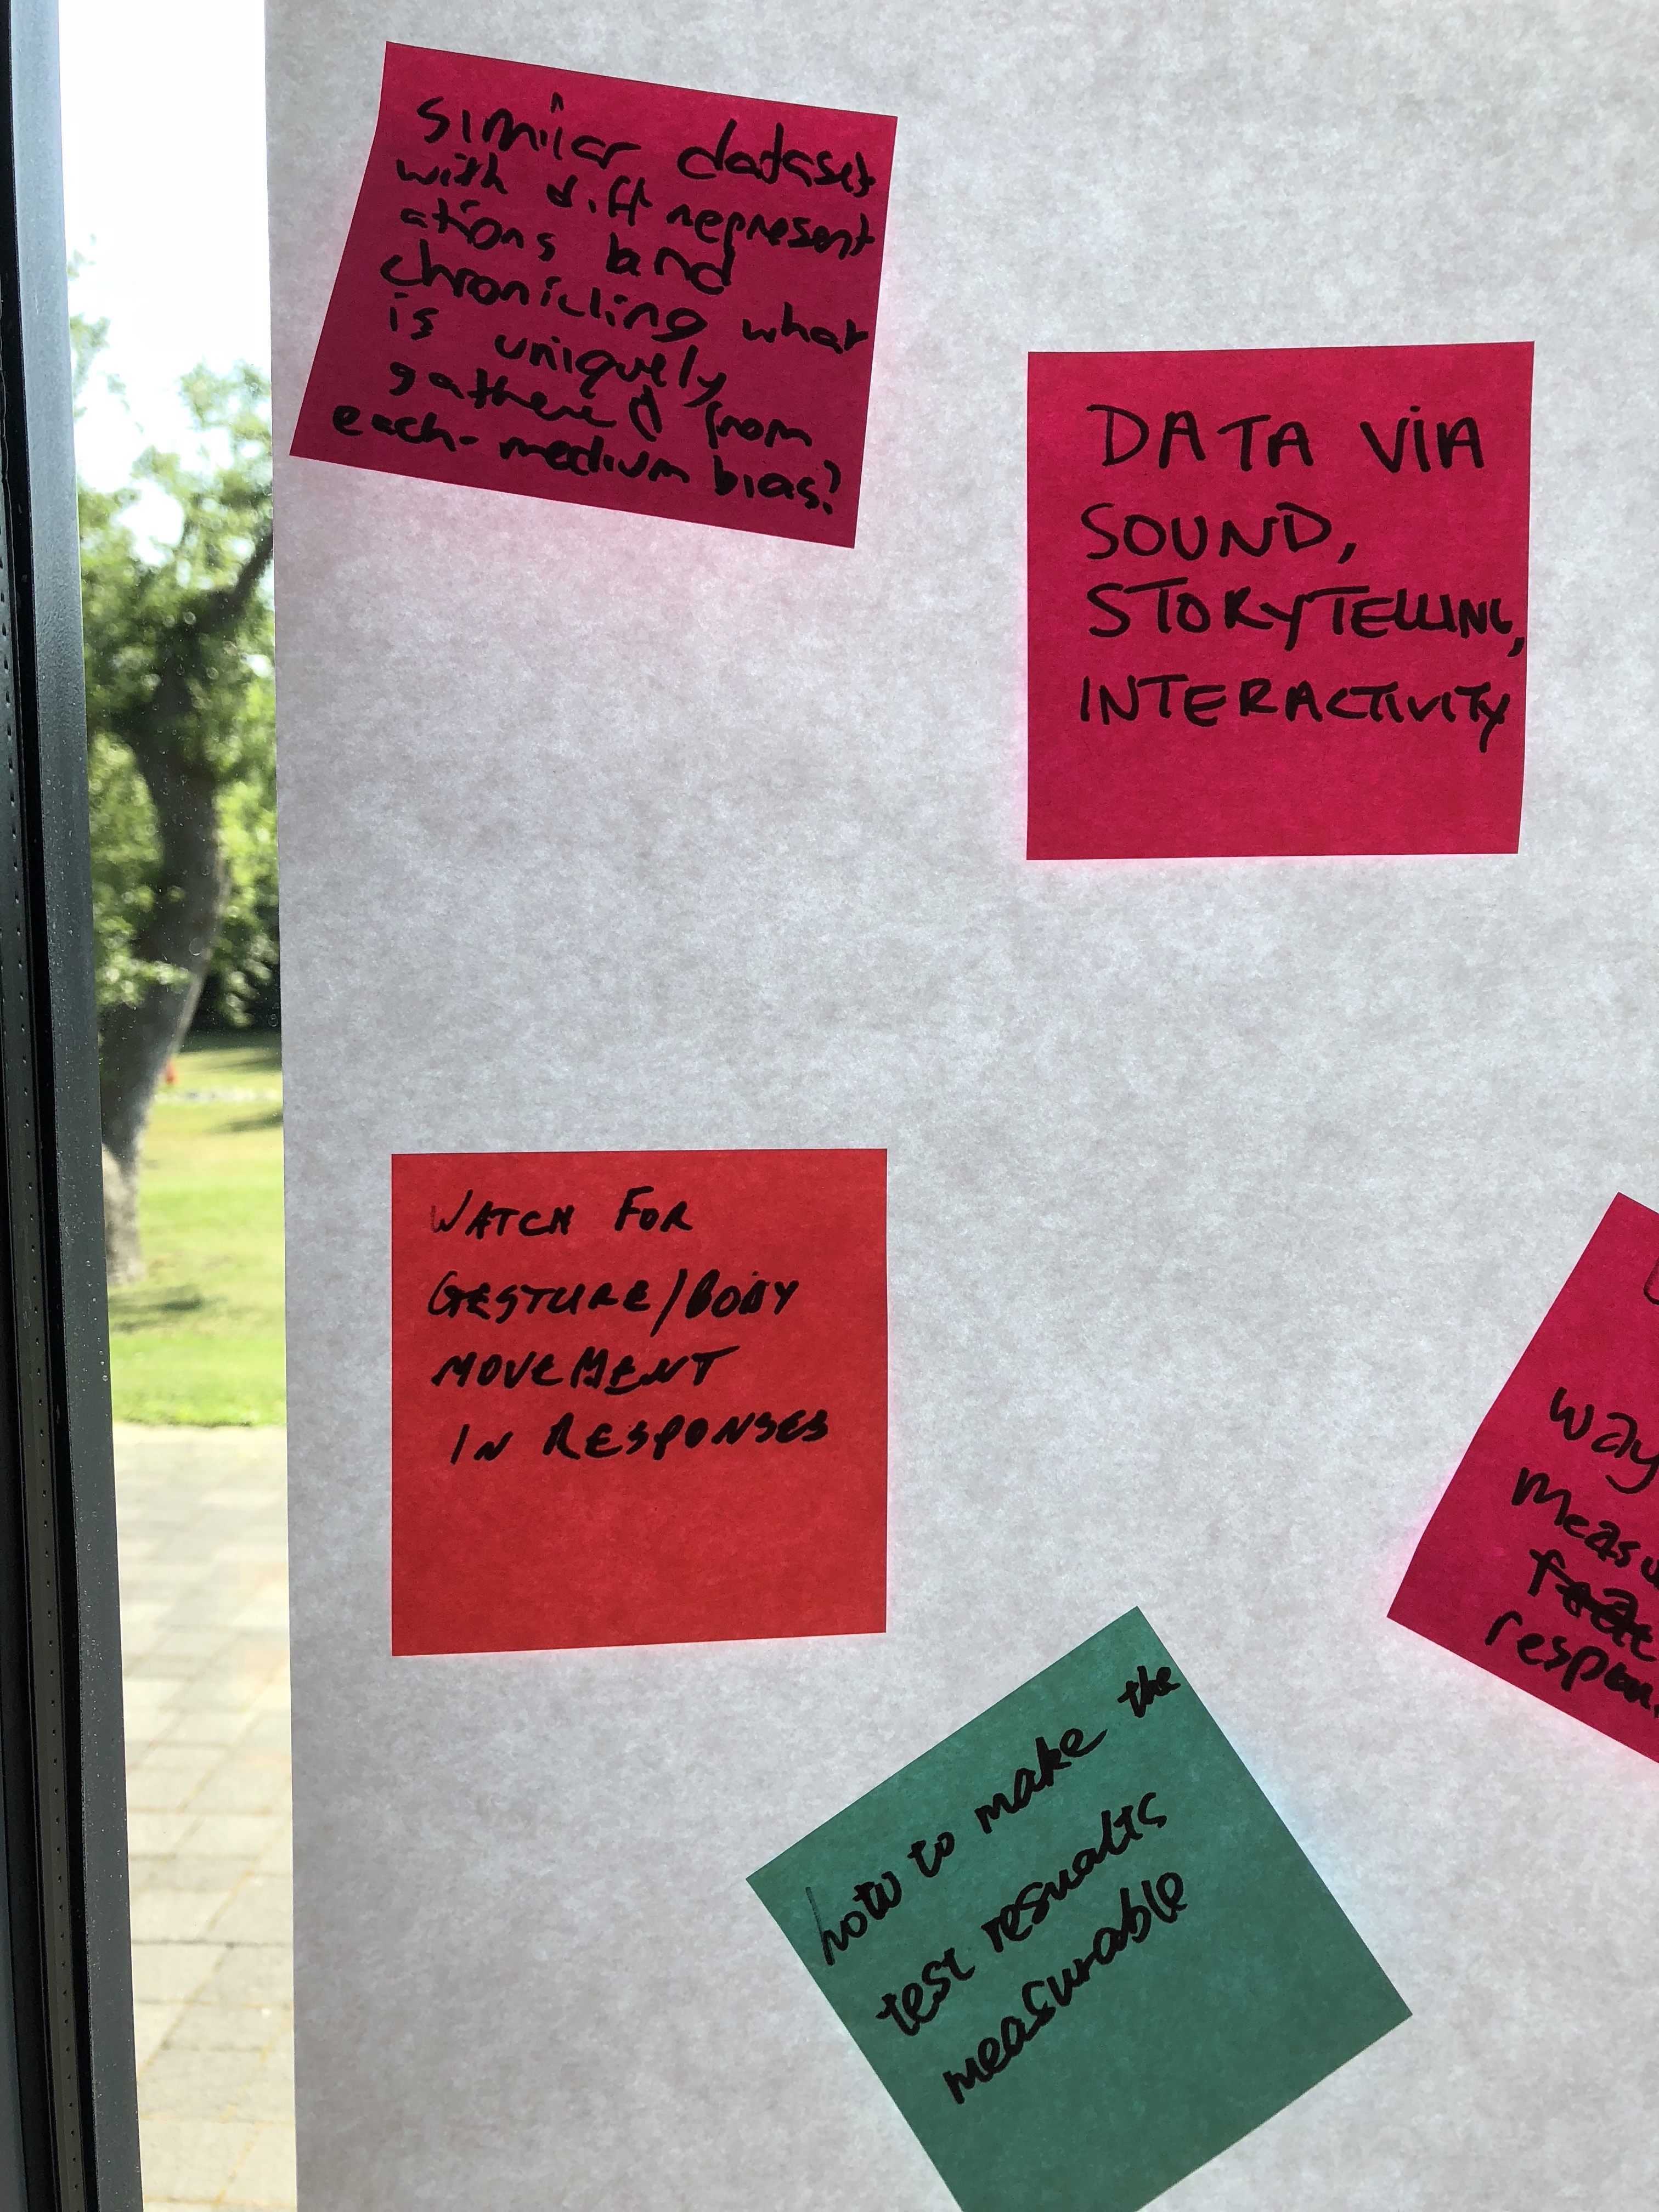 similar dataset
with diff represent
ations and
chronicling what
is uniquely
gathered from
each- medium bias?
DATA VIA
SOUND,
STORYTELLING,
INTERACTIVITY
WATCH FOR
GESTURE/BODY
MOVEMENT
IN RESPONSES
way
measu
respon
how to make the
test resualts
measurable